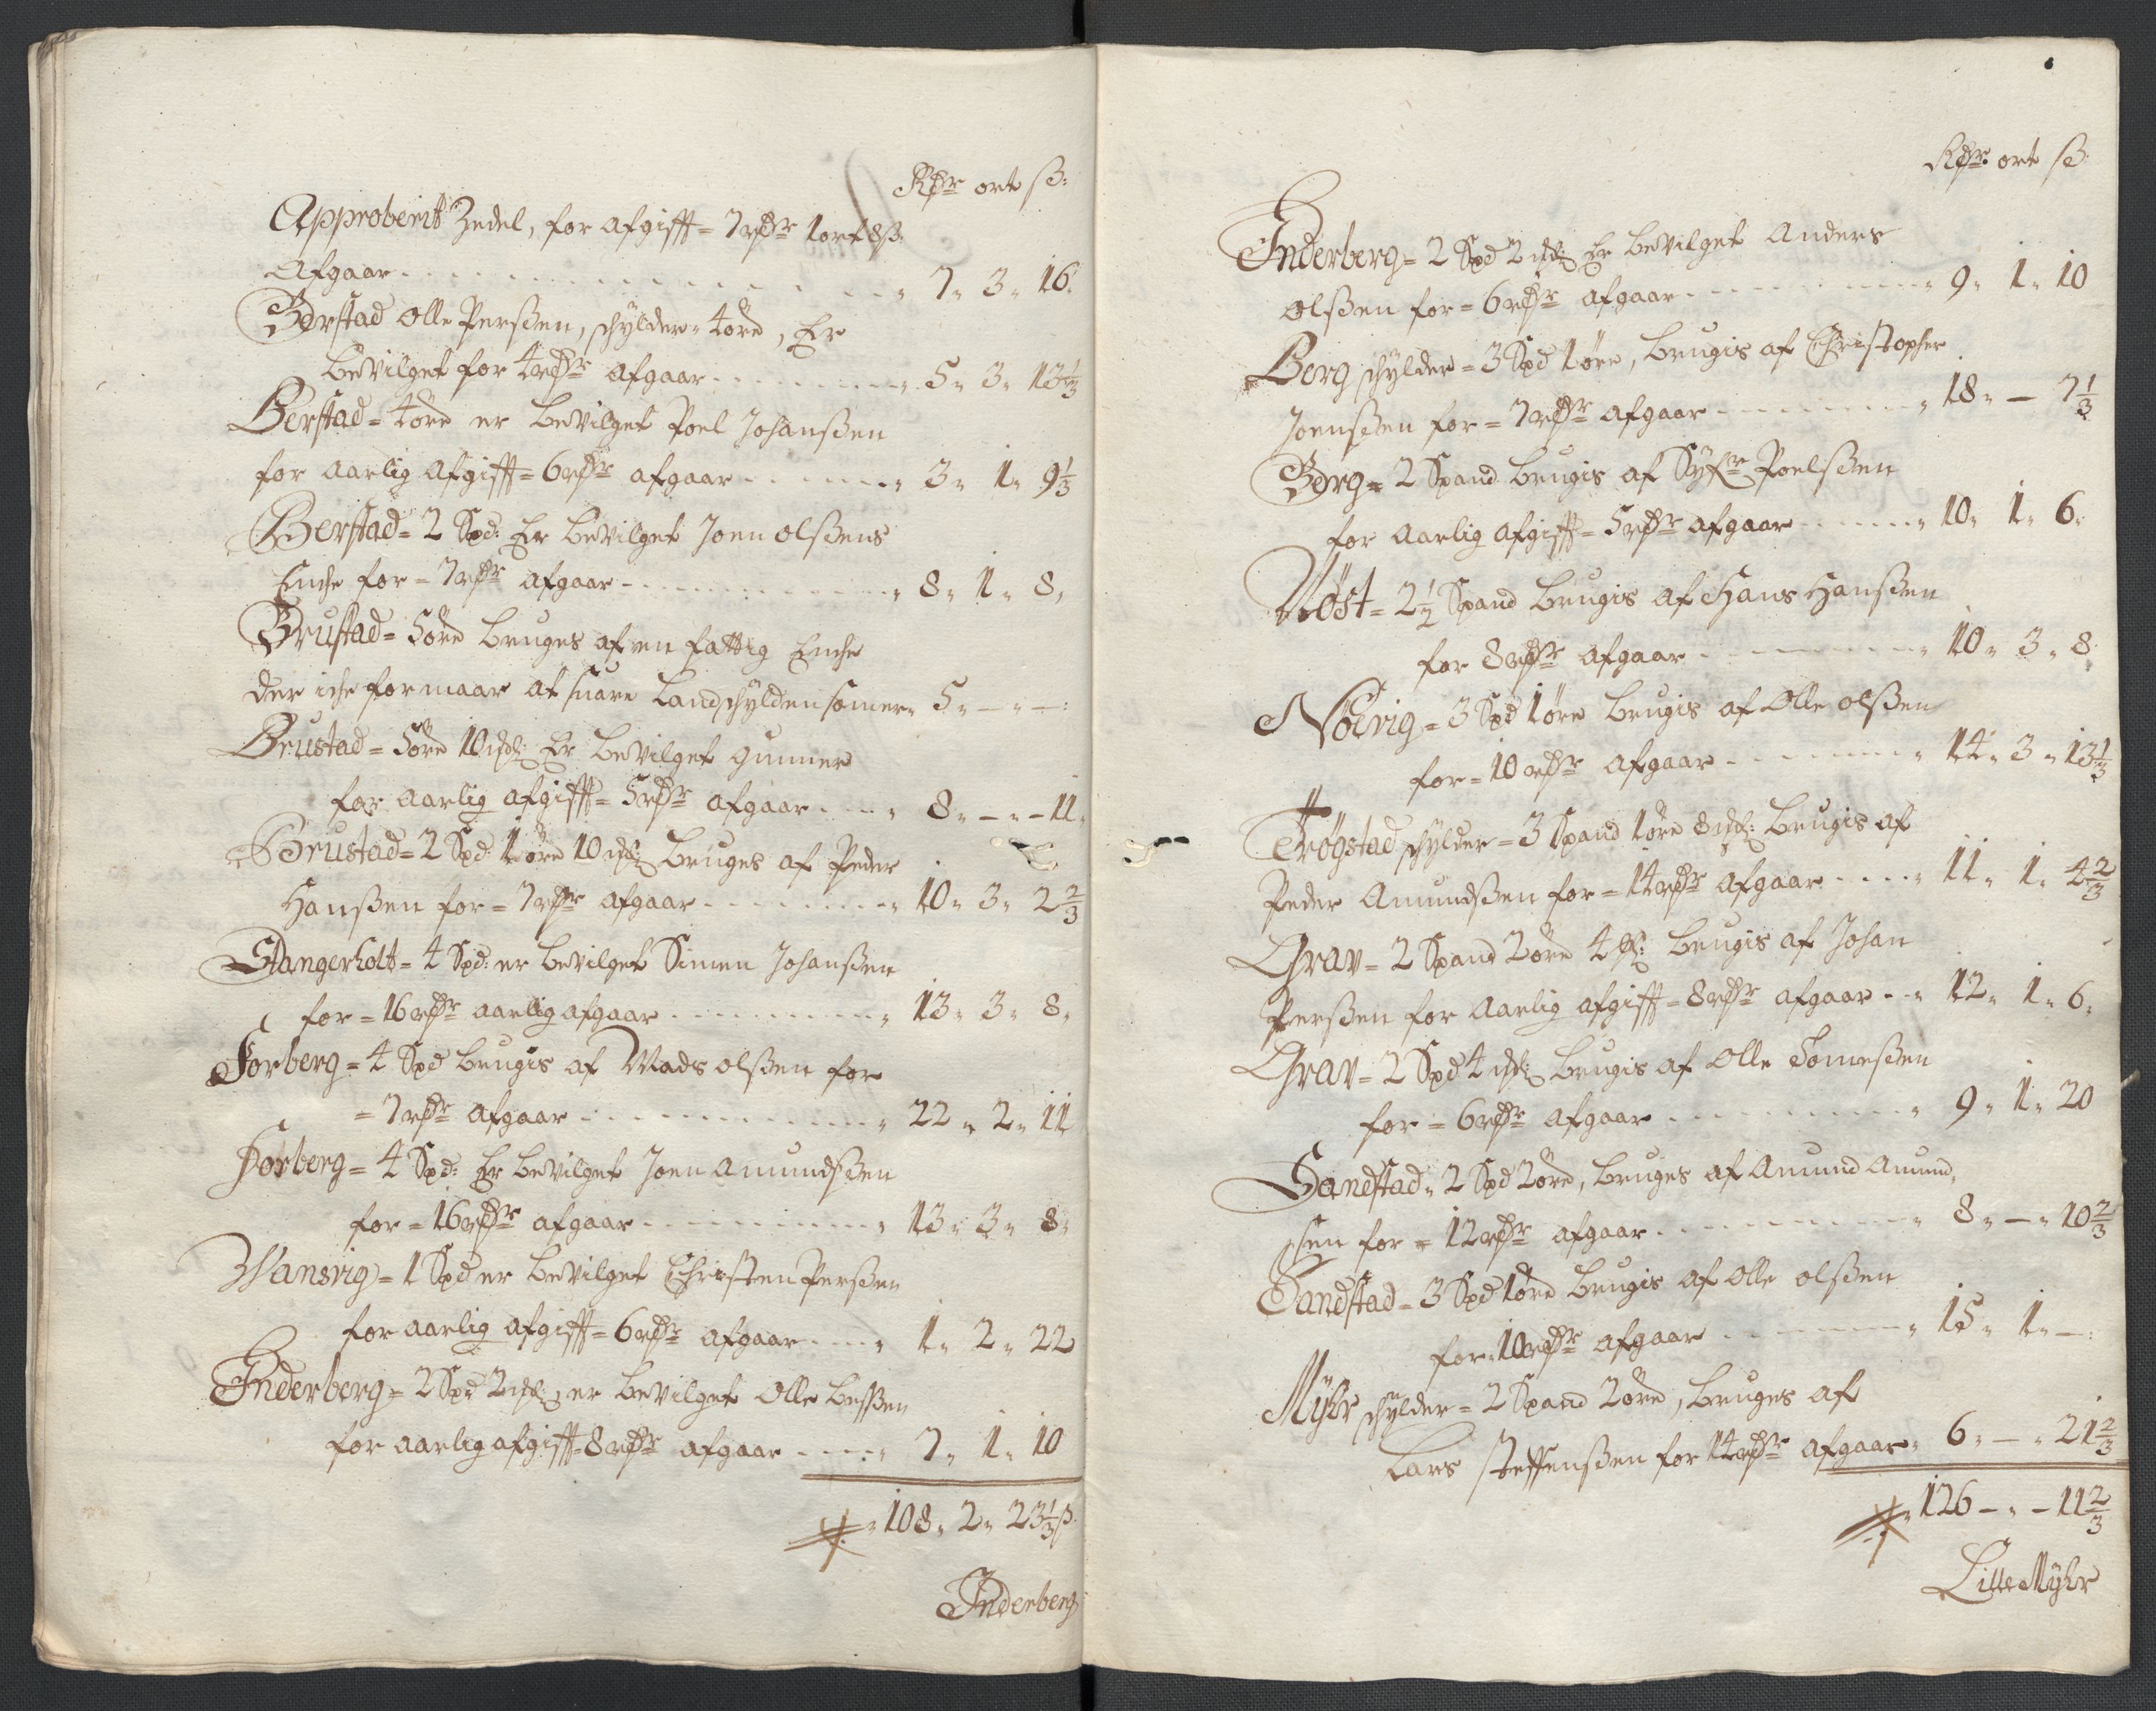 Rdr ort ß:
Approberit Zedel, for afgifft = 7 rdr 1 ort 8 ß
Afgaar . . . . . . . . . . . . " 7 " 3 " 16 "
Berstad Olle Perßen, schylder = 4 öre, Er
bevilget for 4 rdr afgaar - - - - - - " 5 " 3 " 13 1/3
Berstad = 4 öre er bevilget Poel Johanßen
for aarlig afgifft = 6 rdr afgaar - - - - - " 3 " 1 " 9 1/3
Berstad = 2 Spd: Er bevilget Joen olßens
Enche for = 7 rdr afgaar - - - - - - - - " 8 " 1 " 8,
Brustad = 5 öre bruges af en fattig Enche
der iche formaar at suare Landschylden "5 " — " — :
Brustad = 5 öre 10 mk: Er bevilget gunner
for aarlig afgifft = 5 rdr afgaar - - - " 8 " — " — 11 "
Brustad = 2 Spd: 1 öre 10 mk: bruges af Peder
Hanßen for = 7 rdr afgaar - - - - - - - " 10 " 3 " 2 2/3
Stangerholt = 4 Spd: er bevilget Simen Johanßen
for = 16 rdr aarlig afgaar - - - - - - - " 13 " 3 " 8 "
Forberg = 4 Spd brugis af Mads olßen for
= 7 rdr afgaar - - - - - - - - - - " 22 " 2 " 11
Forberg = 4 Spd: Er bevilget Joen amundßen
for = 16 rdr afgaar - - - - - - - - " 13 " 3 " 8 "
Wansvig = 1 Spd er bevilget Christen Perßen
for aarlig afgifft = 6 rdr afgaar - - - - " 1 " 2 " 22
Inderberg = 2 Spd 2 mk: er bevilget Olle Beßen
for aarlig afgifft = 8 rdr afgaar - - - - " 7 " 1 " 10
" 108 " 2 " 23 1/3 ß.
Inderberg
Rdr ort ß
Inderberg = 2 Spd 2 mk: Er bevilget Anders
olßen for = 6 rdr afgaar - - - - - - - - " 9 " 1 " 10
Berg schylder = 3 Spd 1 öre, brugis af Christopher
Joenßen for = 7 rdr afgaar - - - - - - - " 18 " — 7 1/3
Berg = 2 Spand brugis af Poelßen
for aarlig afgifft = 5 rdr afgaar - - - - - " 10 " 1 " 6 "
Nöst = 2 1/2 Spand brugis af Hans Hanßen
for 8 rdr afgaar - - - - - - - - " 10 " 3 " 8
Nöevig = 3 Spd 1 öre brugis af Olle olßen
for = 10 rdr afgaar - - - - - - - " 14 " 3 " 13 1/3
Trögstad schylder = 3 Spand 1 öre 8 mk: brugis af
Peder Amundßen for = 14 rdr afgaar - - - - " 11 " 1 " 4 2/3
Grav = 2 Spand 2 öre 4 mk: brugis af Johan
Perßen for aarlig afgifft = 8 rdr afgaar - - " 12 " 1 " 6 "
Grav = 2 Spd 4 mk: brugis af Olle Tomeßen
for = 6 rdr afgaar . - - - - - - - - " 9 " 1 " 20
Sandstad = 2 Spd 2 öre, bruges af Amund Amund,
sen for = 12 rdr afgaar - - - - - - - - " 8 " — " 10 2/3
Sandstad = 3 Spd 1 öre brugis af Olle olßen
for = 10 rdr afgaar - - - - - - - " 15 " 1 " — :
Myhr schylder = 2 Spand 2 öre, bruges af
Lars Steffenßen for 14 rdr afgaar " 6 " — " 21 2/3
" 126 — " — 11 2/3
Lille Myhr